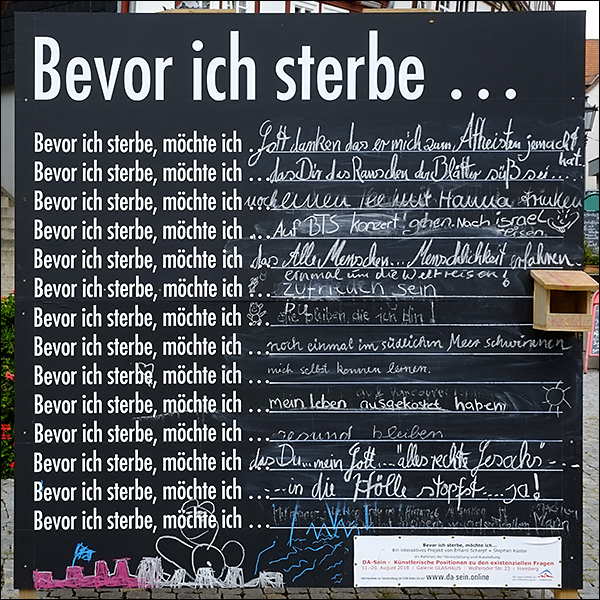 Bevor ich sterbe ...
Bevor ich sterbe, möchte ich ... Gott danken das er mich zum Atheisten gemacht hat.
Bevor ich sterbe, möchte ich ... das Dir das Rauschen der Blätter süß sei...
Bevor ich sterbe, möchte ich noch einen Tee mit Hanna trinken
Bevor ich sterbe, möchte ich ... Auf BTS konzert gehen. Nach israel reisen.
Bevor ich sterbe, möchte ich das Alle Menschen.... Menschlichkeit erfahren.
einmal um die Welt reisen!
Bevor ich sterbe, möchte ich zufrieden sein
Bevor ich sterbe, möchte ich die bleiben, die ich bin!
Bevor ich sterbe, möchte ich ... noch einmal im südlichen Meer schwimmen
Bevor ich sterbe, möchte ich ... mich selbst kennen lernen.
Bevor ich sterbe, möchte ich ... mein leben ausgekostet haben
Bevor ich sterbe, möchte ich ... gesund bleiben
Bevor ich sterbe, möchte ich das Du... mein Gott.... "alles rechte Gesocks"--
Bevor ich sterbe, möchte ich ... -- in die Hölle stopfst.... ja!
Bevor ich sterbe, möchte ich ...
Bevor ich sterbe, möchte ich...
Ein interaktives Projekt von Erhard Scherpf + Stephan Küster
im Rahmen der Veranstaltung und Ausstellung
DA-Sein - Künstlerische Positionen zu den existenziellen Fragen
11.-26. August 2018 - Galerie GLASHAUS - Wolfsroder Str. 23 - Homberg
www.da-sein.online